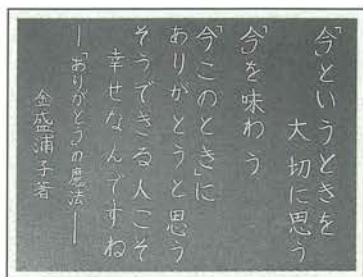 「今」というときを
大切に思う
「今」を味わう
「今このとき」に
ありがとうと思う
そうできる人こそ
幸せなんですね
―「ありがとう」の魔法―
金盛浦子著